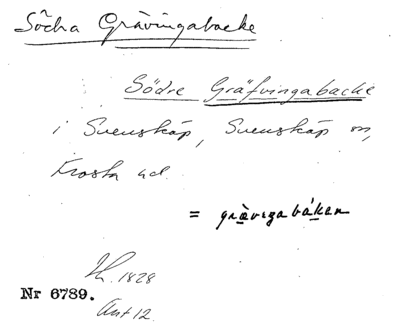 Södra Grävingabacke
Södre Gräfvingabacke
i Svenskåp, Svenskåp sn,
Frosta hd.
= gràvigabákan
Th. 1828
Nr 6789.
Ant 12.